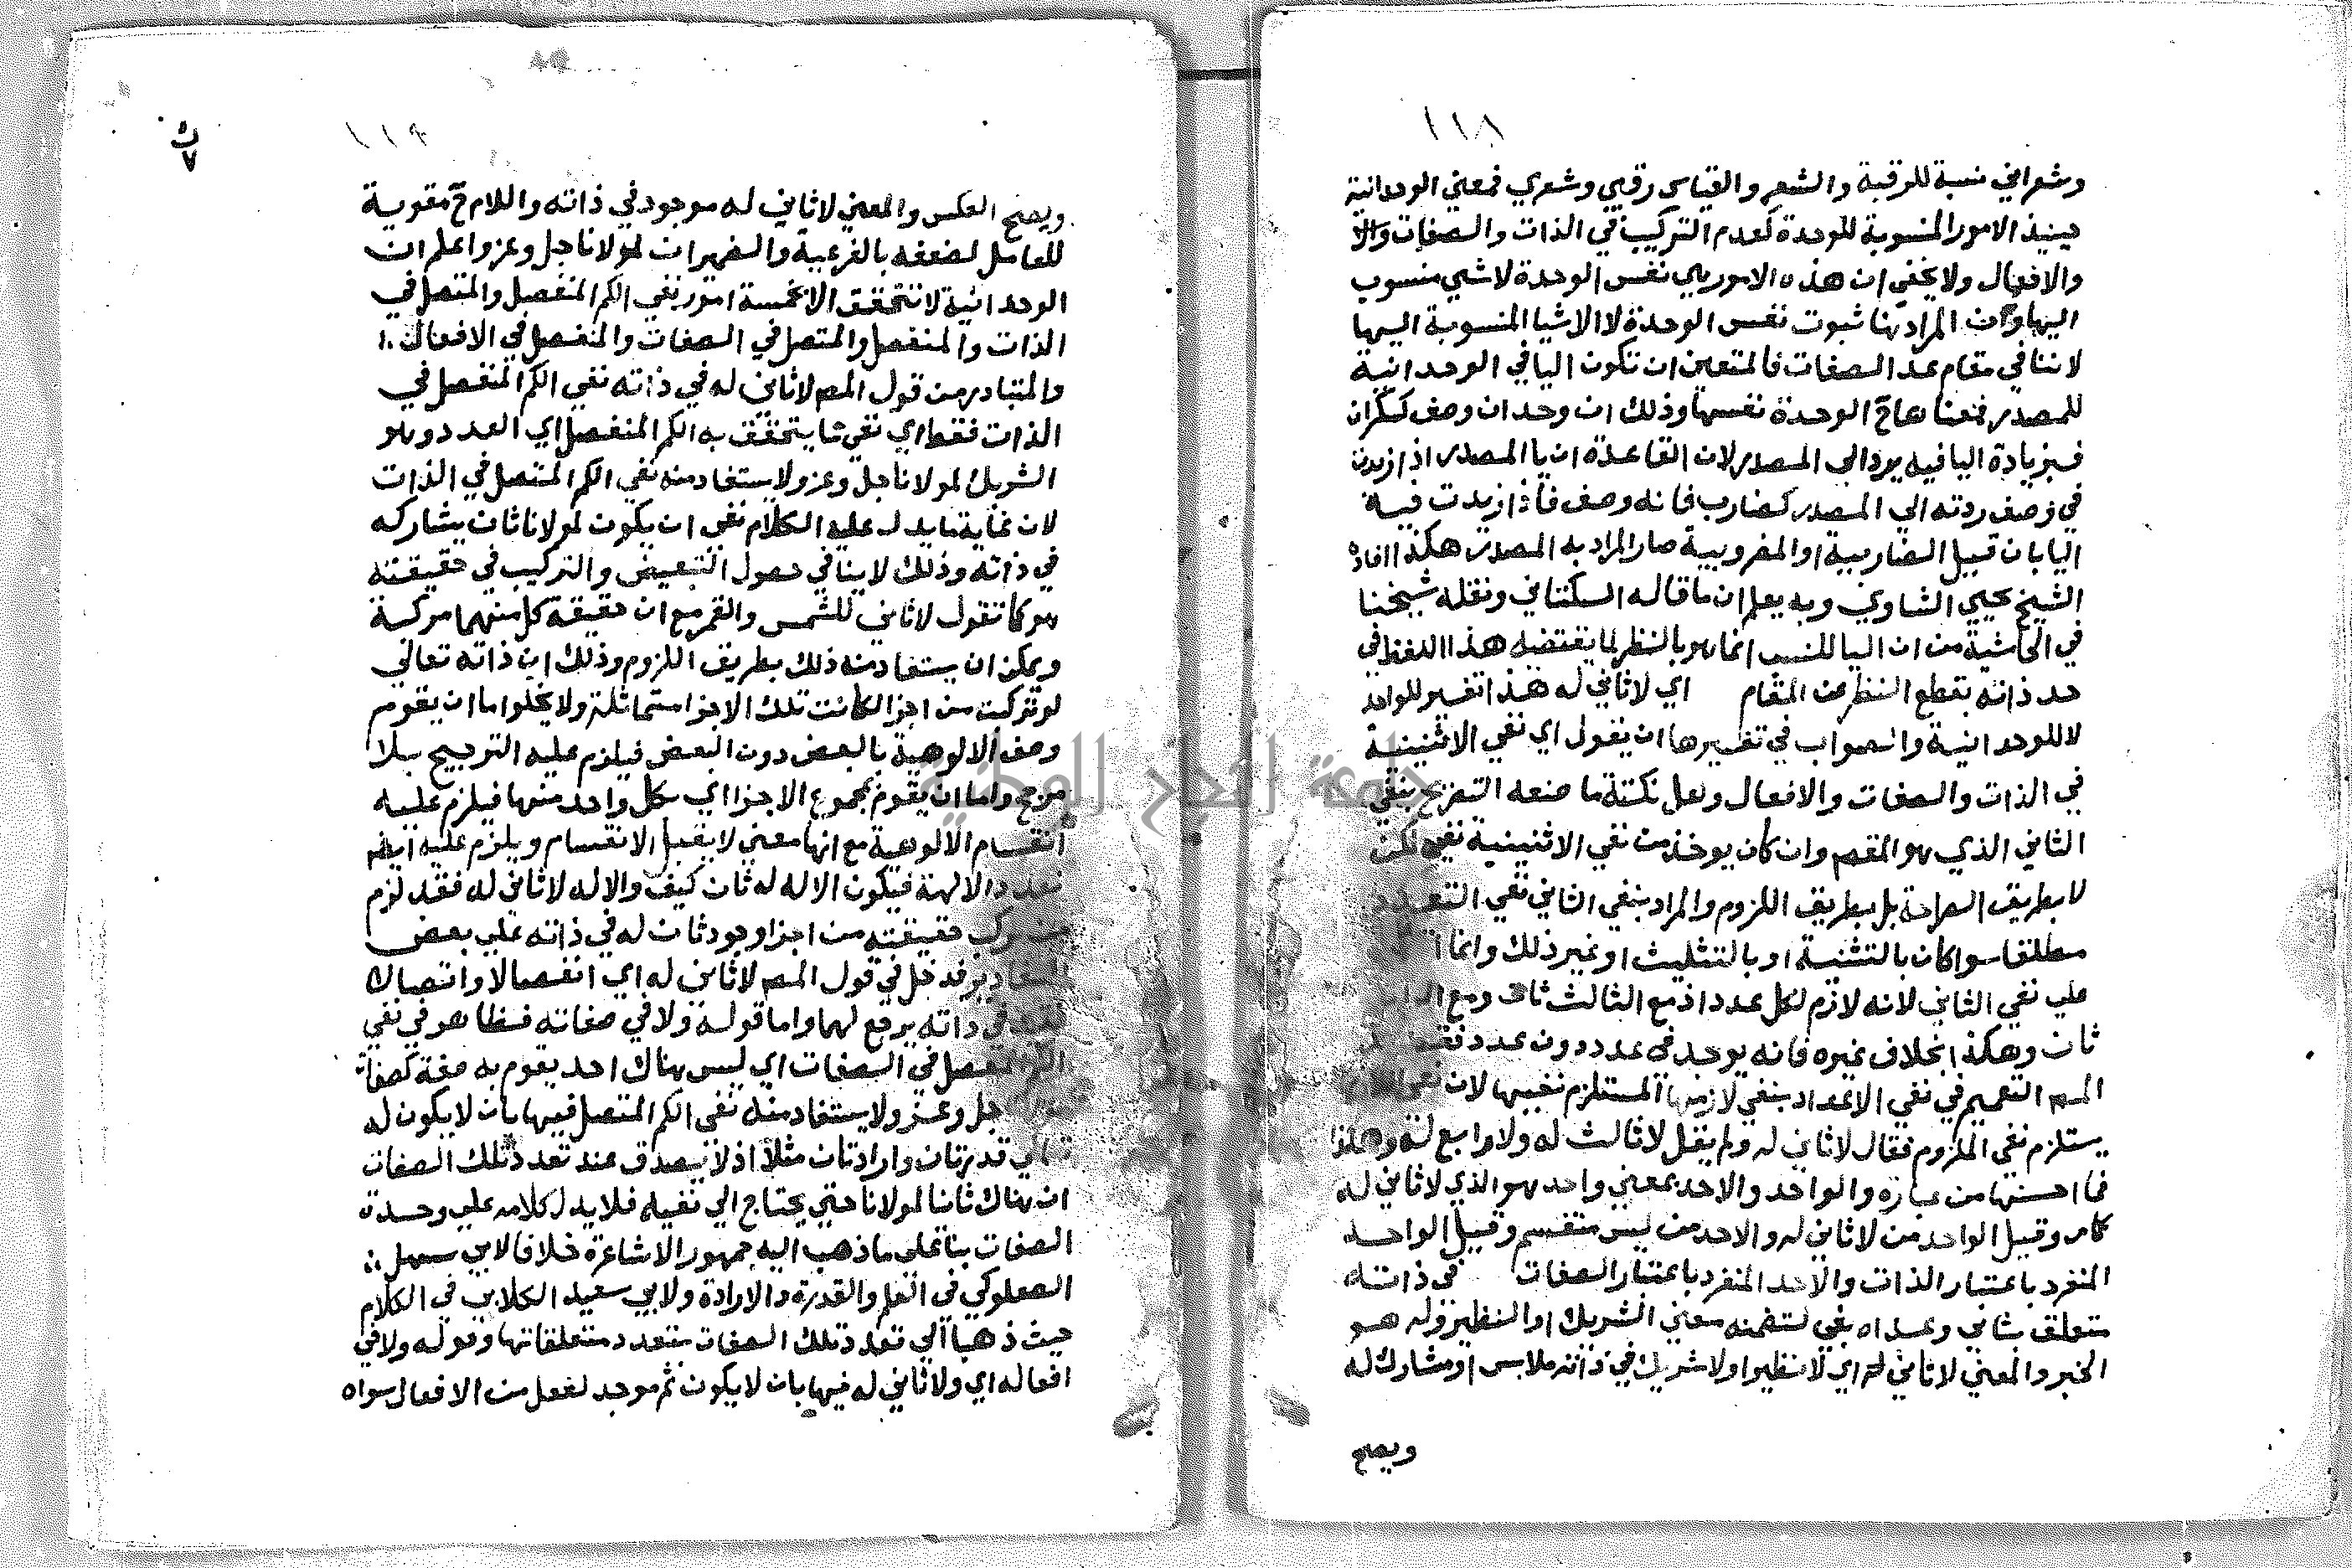 ١١٨
وشعراني نسبة للرقبة والشعر والقياس رقبي وشعري فمعني الوحدانية
حينيذ الامور المنسوبة للوحدة لعدم التركيب في الذات والصفات
والافعال ولا يخفي ان هذه الامور هي نفس الوحدة لا شي منسوب
اليها وان المراد هنا ثبوت نفس الوحدة لا الاشيا المنسوبة اليها
لاننا في مقام عد الصفات فالمتعين ان تكون اليا في الوحدانية
للمصدر فمعناها ح الوحدة نفسها وذلك ان وحدان وصف كسكران
فبزيادة اليا فيه يرد الي المصدر لان القاعدة ان يا المصدر اذا زيدت
في وصف ردته الي المصدر كضارب فانه وصف فاذا زيدت فيه
اليا بان قيل الضاربية او المضروبية صار المراد به المصدر هكذا افاده
الشيخ يحيي الشاوي وبه يعلم ان ما قاله السكتاني ونقله شيخنا
في الحاشية من ان اليا للنسب انما هو بالنظر لما يقتضيه هذا اللفظ في
حد ذاته بقطع النظر عن المقام اي لا ثاني له هذا تفسير للواحد
لا للوحدانية والصواب في تفسيرها ان يقول اي نفي الاثنينية
في الذات والصفات والافعال ولعل نكتة ما صنعه التصريح بنفي
الثاني الذي هو المقصم وان كان يوخذ من نفي الاثنينية نفي لكن
لا بطريق الصراحة بل بطريق اللزوم والمراد بنفي الثاني نفي التعدد
مطلقا سوا كان بالتثنية او بالتثليث او غير ذلك وانما
علي نفي الثاني لانه لازم لكل عدد اذ مع الثالث ثان ومع
ثان وهكذا بخلاف غيره فانه يوجد في عدد دون عدد
المصم التعميم في نفي الاعداد بنفي لازمها المستلزم نفيها لان نفي
يستلزم نفي الملزوم فقال لا ثاني له ولم يقل لا ثالث له ولا رابع له وهكذا
فما احسنها من عبارة والواحد والاحد بمعني واحد هو الذي لا ثاني له
كامر وقيل الواحد من لا ثاني له والاحد من ليس منقسم وقيل الواحد
المنفرد باعتبار الذات والاحد المنفرد باعتبار الصفات في ذاته
متعلق بثاني وعداه بفي لتضمنه معني الشريك او النظير وله هو
الخبر والمعني لا ثاني له اي لا نظير او لا شريك في ذاته ملابس او مشارك له
ويصح
١١٩
ك
٧
ويصح العكس والمعني لا ثاني له موجود في ذاته واللام ح مقوية
للعامل لضعفه بالفرعية والضميرات لمولانا جل وعز واعلم ان
الوحدانية لا تتحقق الا بخمسة امور نفي الكم المنفصل والمتصل في
الذات والمنفصل والمتصل في الصفات والمنفصل في الافعال
والمتبادر من قول المصم لا ثاني له في ذاته نفي الكم المنفصل في
الذات فقط اي نفي ما يتحقق به الكم المنفصل اي العدد وهو
الشريك لمولانا جل وعز ولا يستفاد منه نفي الكم المتصل في الذات
لان غاية ما يدل عليه الكلام نفي ان يكون لمولانا ثان يشاركه
في ذاته وذلك لا ينافي حصول التبعيض والتركيب في حقيقته
هو كما تقول لا ثاني للشمس والقمر مع ان حقيقة كل منهما مركبة
ويمكن ان يستفاد منه ذلك بطريق اللزوم وذلك ان ذاته تعالي
لو تركبت من اجزا لكانت تلك الاجزا متماثلة ولا يخلوا ما ان يقوم
وصف الالوهية بالبعض دون البعض فيلزم عليه الترجيح بلا
مرجح واما ان يقوم بمجموع الاجزا اي بكل واحد منها فيلزم عليه
انقسام الالوهية مع انها معني لا يقبل الانقسام ويلزم عليه ايضا
تعدد الالهة فيكون الاله له ثان كيف والاله لا ثاني له فقد لزم
من تركب حقيقته من اجزا وجود ثان له في ذاته علي بعض
التقادير فدخل في قول المصم لا ثاني له اي انفصالا واتصالا
لقوله في ذاته يرجع لهما واما قوله ولا في صفاته فظاهر في نفي
الكم المنفصل في الصفات اي ليس هناك احد يقوم به صفة كصفات
جل وعز ولا يستفاد منه نفي الكم المتصل فيها بان لا يكون له
تعالي قدرتان وارادتان مثلا اذ لا يصدق عند تعدد تلك الصفات
ان هناك ثانيا لمولانا حتي يحتاج الي نفيه فلا يدل كلامه علي وحدة
الصفات بنا علي ما ذهب اليه جمهور الاشاعرة خلافا لابي سهل
الصعلوكي في العلم والقدرة والارادة ولابي سعيد الكلابي في الكلام
حيث ذهبا الي تعدد تلك الصفات بتعدد متعلقاتها وقوله ولا في
افعاله اي ولا ثاني له فيها بان لا يكون ثم موجد لفعل من الافعال سواه
جامعة النجاح الوطنية